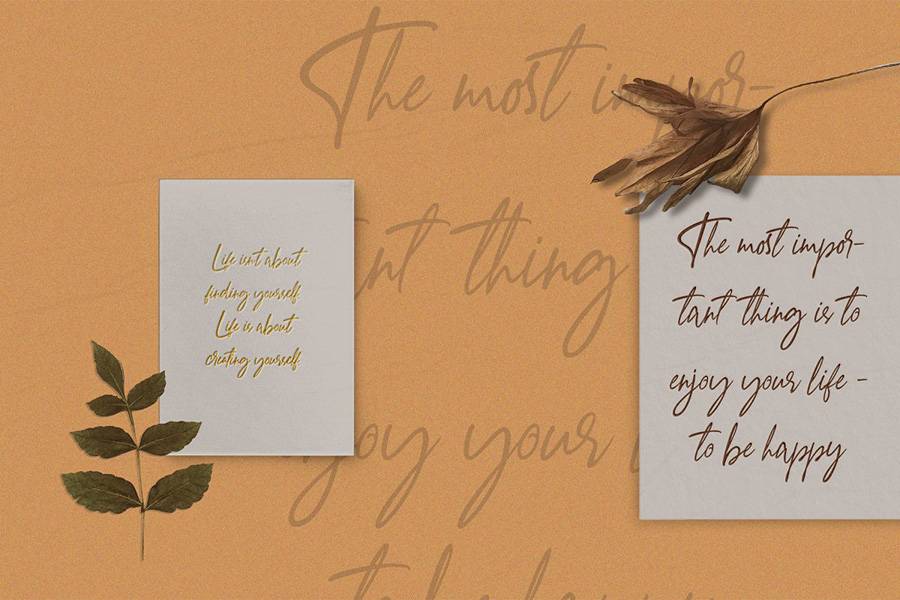 The most impor-
tant thing
enjoy your
to be happy
Life isn't about
finding yourself.
Life is about
creating yourself.
The most impor-
tant thing is to
enjoy your life -
to be happy